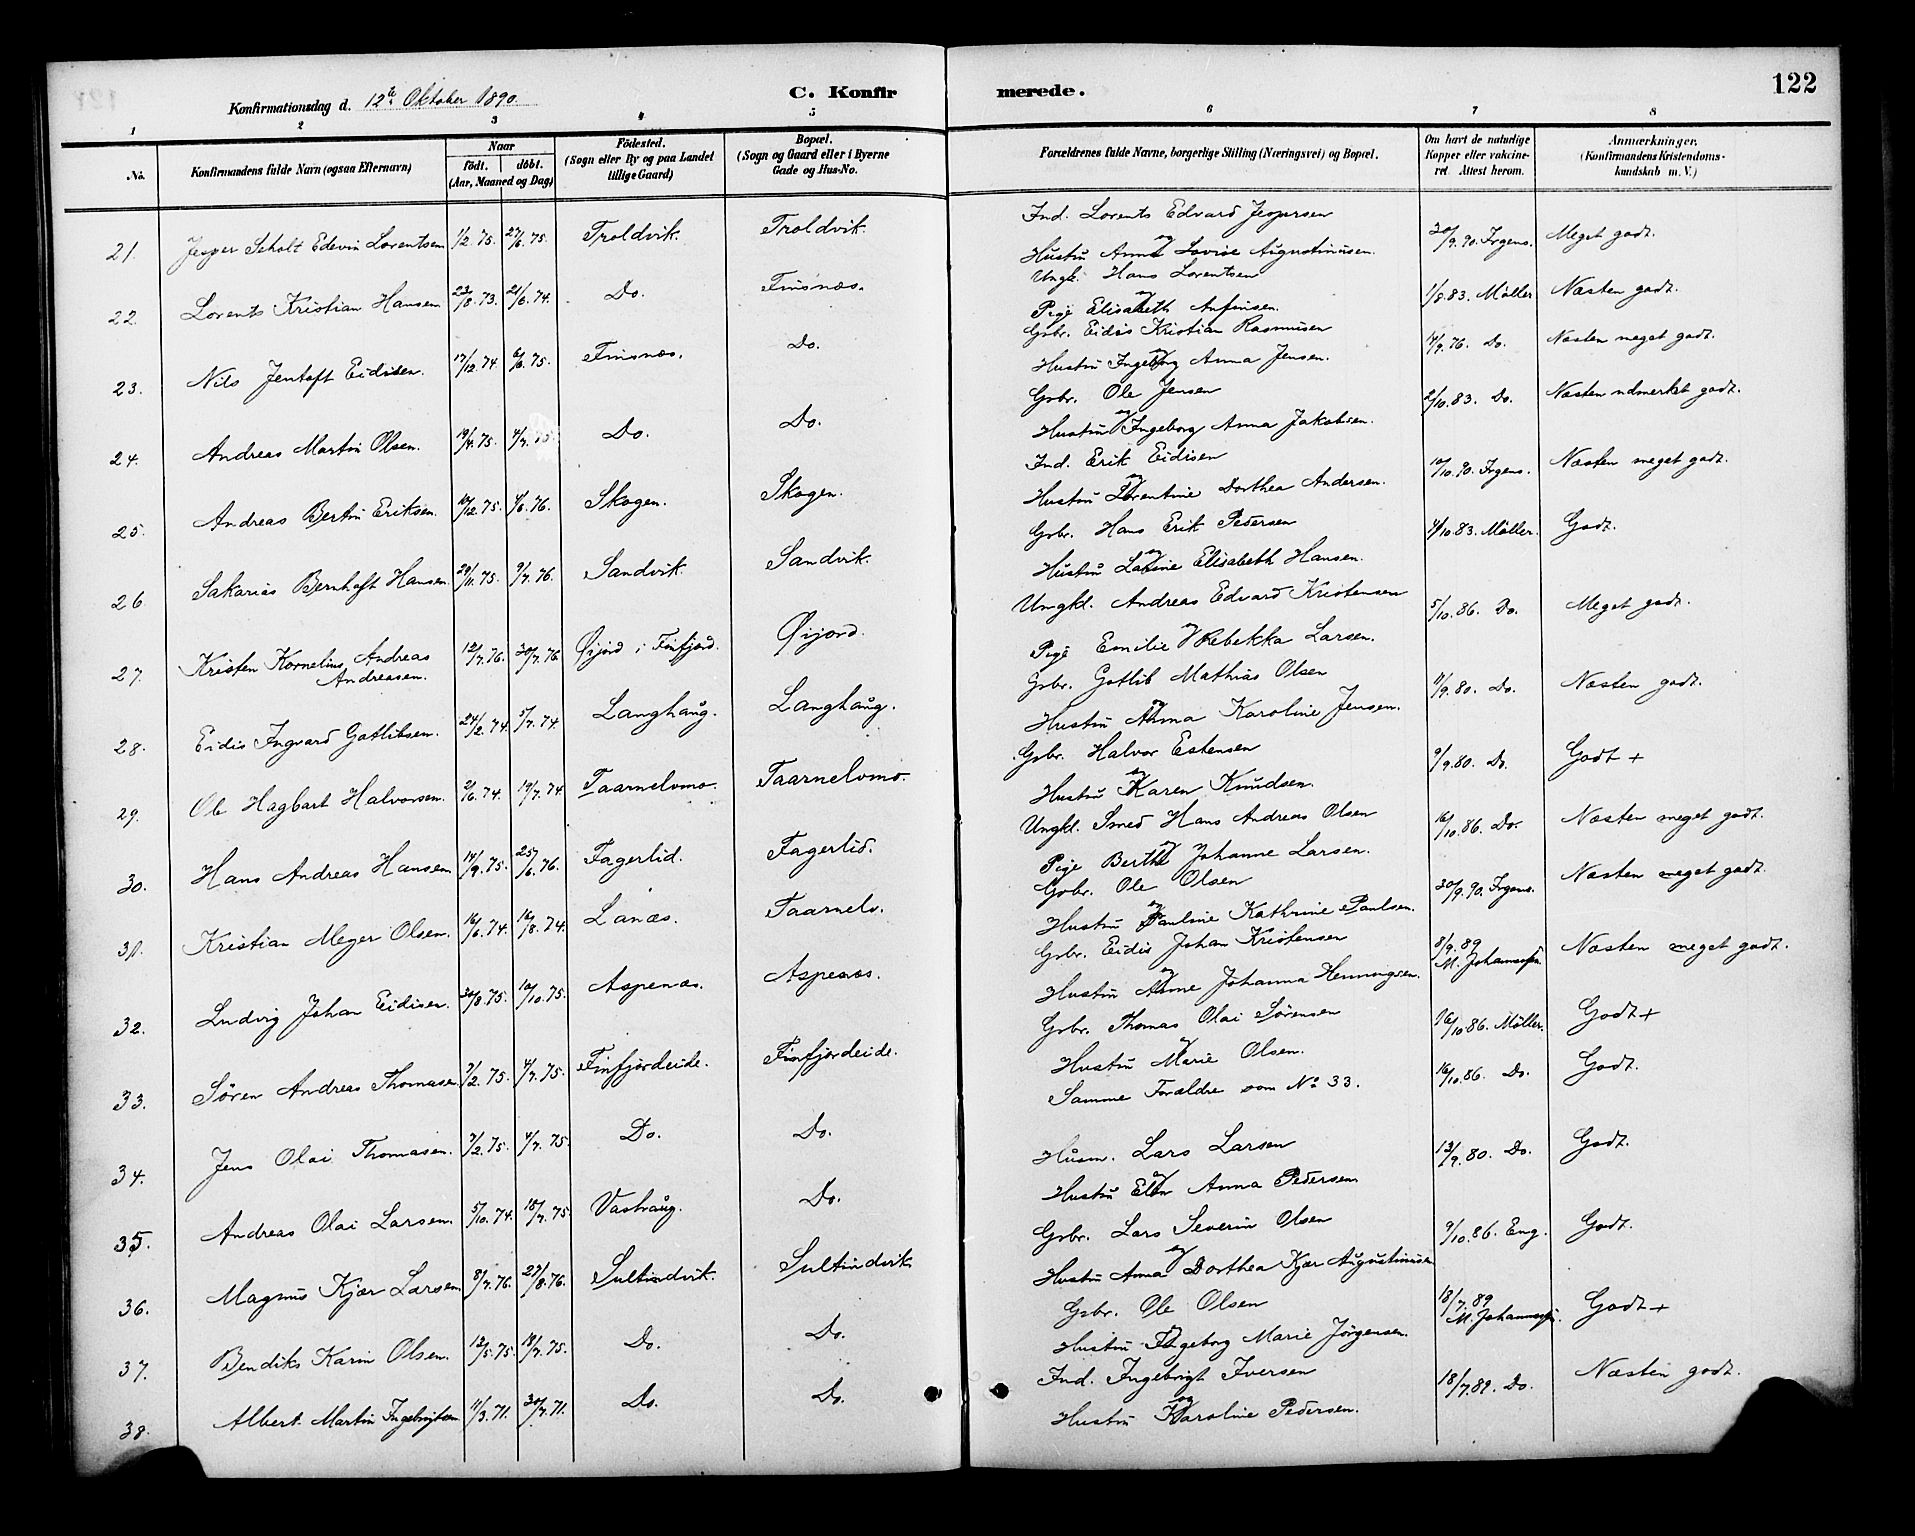 122
Konfirmationsdag d. 12te Oktober 1890.
C. Konfirmerede.
1 2 3 4 5 6 7 8
No. Konfirmandens fulde Navn (ogsaa Efternavn) Naar født. døbt. (Aar, Maaned og Dag) Fødested. (Sogn eller By og paa Landet tillige Gaard) Bopæl. (Sogn og Gaard eller i Byerne Gade og Hus-No. Forældrenes fulde Navne, borgerlige Stilling (Næringsvei) og Bopæl. Om havt de naturlige Kopper eller vakcineret. Attest herom. Anmærkninger. (Konfirmandens Kristendomskundskab m. V.)
21. Jesper Scholt Edevin Lorentsen 1/2.75. 27/6.75. Troldvik. Troldvik. Ind. Lorents Edvard Jespersen og Hustru Anna Lovise Augustinusen. 30/9.90. Irgens. Meget godt.
22. Lorents Kristian Hansen 23/8.73. 21/6.74. Do. Finsnæs. Ungk. Hans Lorentsen og Pige Elisabeth Anfinsen. 1/8.83. Møller Næsten godt.
23. Nils Jentoft Eidisen. 17/12.74. 6/6.75. Finsnæs. Do. Gbr. Eidis Kristian Rasmusen og Hustru Ingeborg Anna Jensen. 4/9.76. Do. Næsten meget godt.
24. Andreas Martin Olsen. 19/4.75. 4/7.75. Do. Do. Gbr. Ole Jensen og Hustru Ingeborg Anna Jakobsen. 2/10.83. Do. Næsten udmerket godt.
25. Andreas Bertin Eriksen. 10/12.75. 4/6.76. Skogen. Skogen. Ind. Erik Eidisen og Hustru Lorentine Dorthea Andersen. 10/10.90. Irgens. Næsten meget godt.
26 Sakarias Bernhoft Hansen. 29/11.75. 9/7.76. Sandvik. Sandvik. Gbr. Hans Erik Pedersen og Hustru Lavine Elisabeth Hansen. 4/10.83. Møller. Godt.
27. Kristen Kornelius Andreas Andreasen. 12/7.76. 30/7.76. Øijord i Finfjord. Øijord. Ungkl. Andreas Edvard Kristensen og Pige Emilie Rebekka Larsen. 5/10.86. Do. Meget godt.
28. Eidis Ingvard Gotlibsen. 24/2.74. 5/7.74. Langhaug. Langhaug. Gbr. Gotlib Mathias Olsen og Hustru Anna Karoline Jensen. 11/9.80. Do. Næsten godt.
29. Ole Hagbart Halvorsen. 2/6.74. 19/7.74 Taarnelvmo. Taarnelvmo. Gbr. Halvor Estensen og Hustru Karen Knudsen. 9/9.80. Do. Godt +
30. Hans Andreas Hansen 14/9.75. 25/6.76. Fagerlid. Fagerlid. Ungkl. Smed Hans Andreas Olsen og Pige Berthe Johanne Larsen. 16/10.86. Do. Næsten meget godt.
31. Kristian Meyer Olsen. 16/6.74. 16/8.74. Lanæs. Taarnelv. Gbr. Ole Olsen og Hustru Pauline Kathrine Paulsen. 30/9.90. Irgens. Næsten meget godt.
32. Ludvig Johan Eidisen. 30/8.75. 10/10.75. Aspenæs. Aspenæs. Gbr. Eidis Johan Kristensen og Hustru Anne Johanna Henningsen. 8/9.89 M. Johannesen. Næsten meget godt.
33. Søren Andreas Thomasen 7/2.75. 4/7.75. Finfjordeide. Finfjordeide. Gbr. Thomas Olai Sørensen og Hustru Marie Olsen. 16/10.86. Møller. Godt +
34. Jens Olai Thomasen. 7/2.75. 4/7.75. Do. Do. Samme Forældre som No 33. 16/10.86. Do. Godt.
35. Andreas Olai Larsen. 5/10.74. 18/7.75. Vashaug. Do. Husm. Lars Larsen og Hustru Elen Anna Pedersen 13/9.80. Do. Godt.
36. Magnus Kjær Larsen 8/7.76. 27/8.76. Sultindvik. Sultindvik Gbr. Lars Severin Olsen og Hustru Anna Dorthea Kjær Augustinusen 9/10.86. Eng. Godt.
37. Bendiks Karin Olsen. 12/5.75. 18/7.75. Do. Do. Gbr. Ole Olsen og Hustru Ingeborg Marie Jørgensen. 18/7.89 M. Johannesen. Godt +
38. Albert Martin Ingebrigtsen 11/3.71. 30/7.71. Do. Do. Ind. Ingebrigt Iversen og Hustru Karoline Pedersen. 18/7.89. Do. Næsten godt.